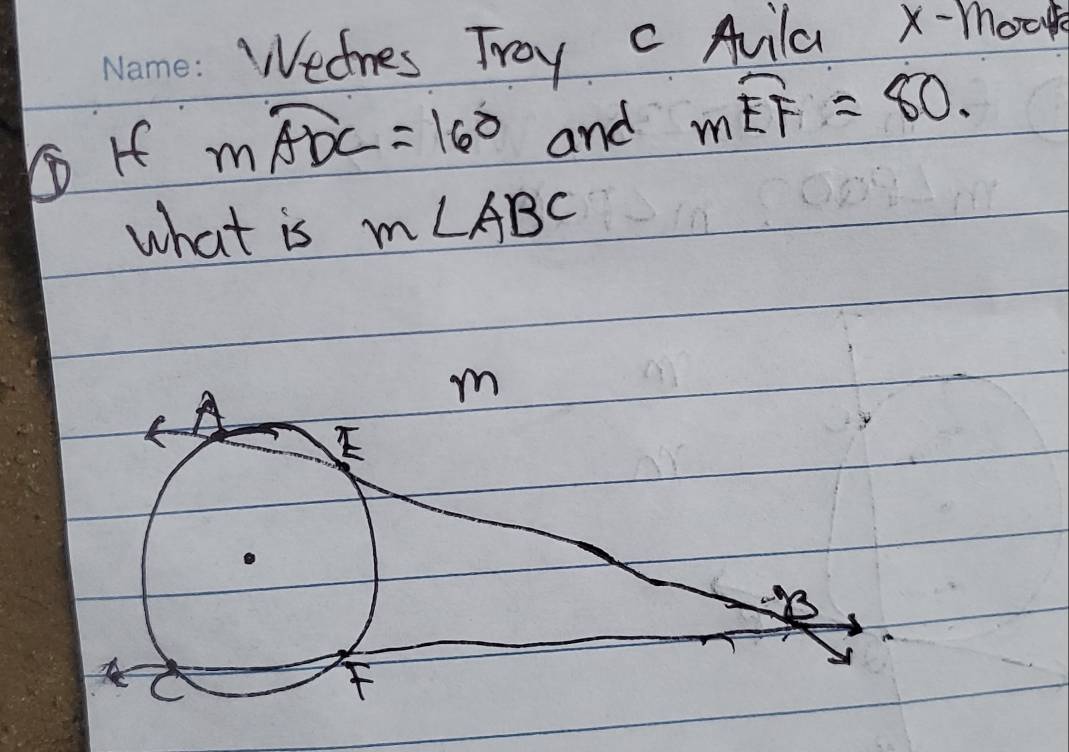 Name: Wednes Troy C Avila
① If mADC = 160 and mEF = 80.
What is m∠ABC
m
A
E
B
C
F